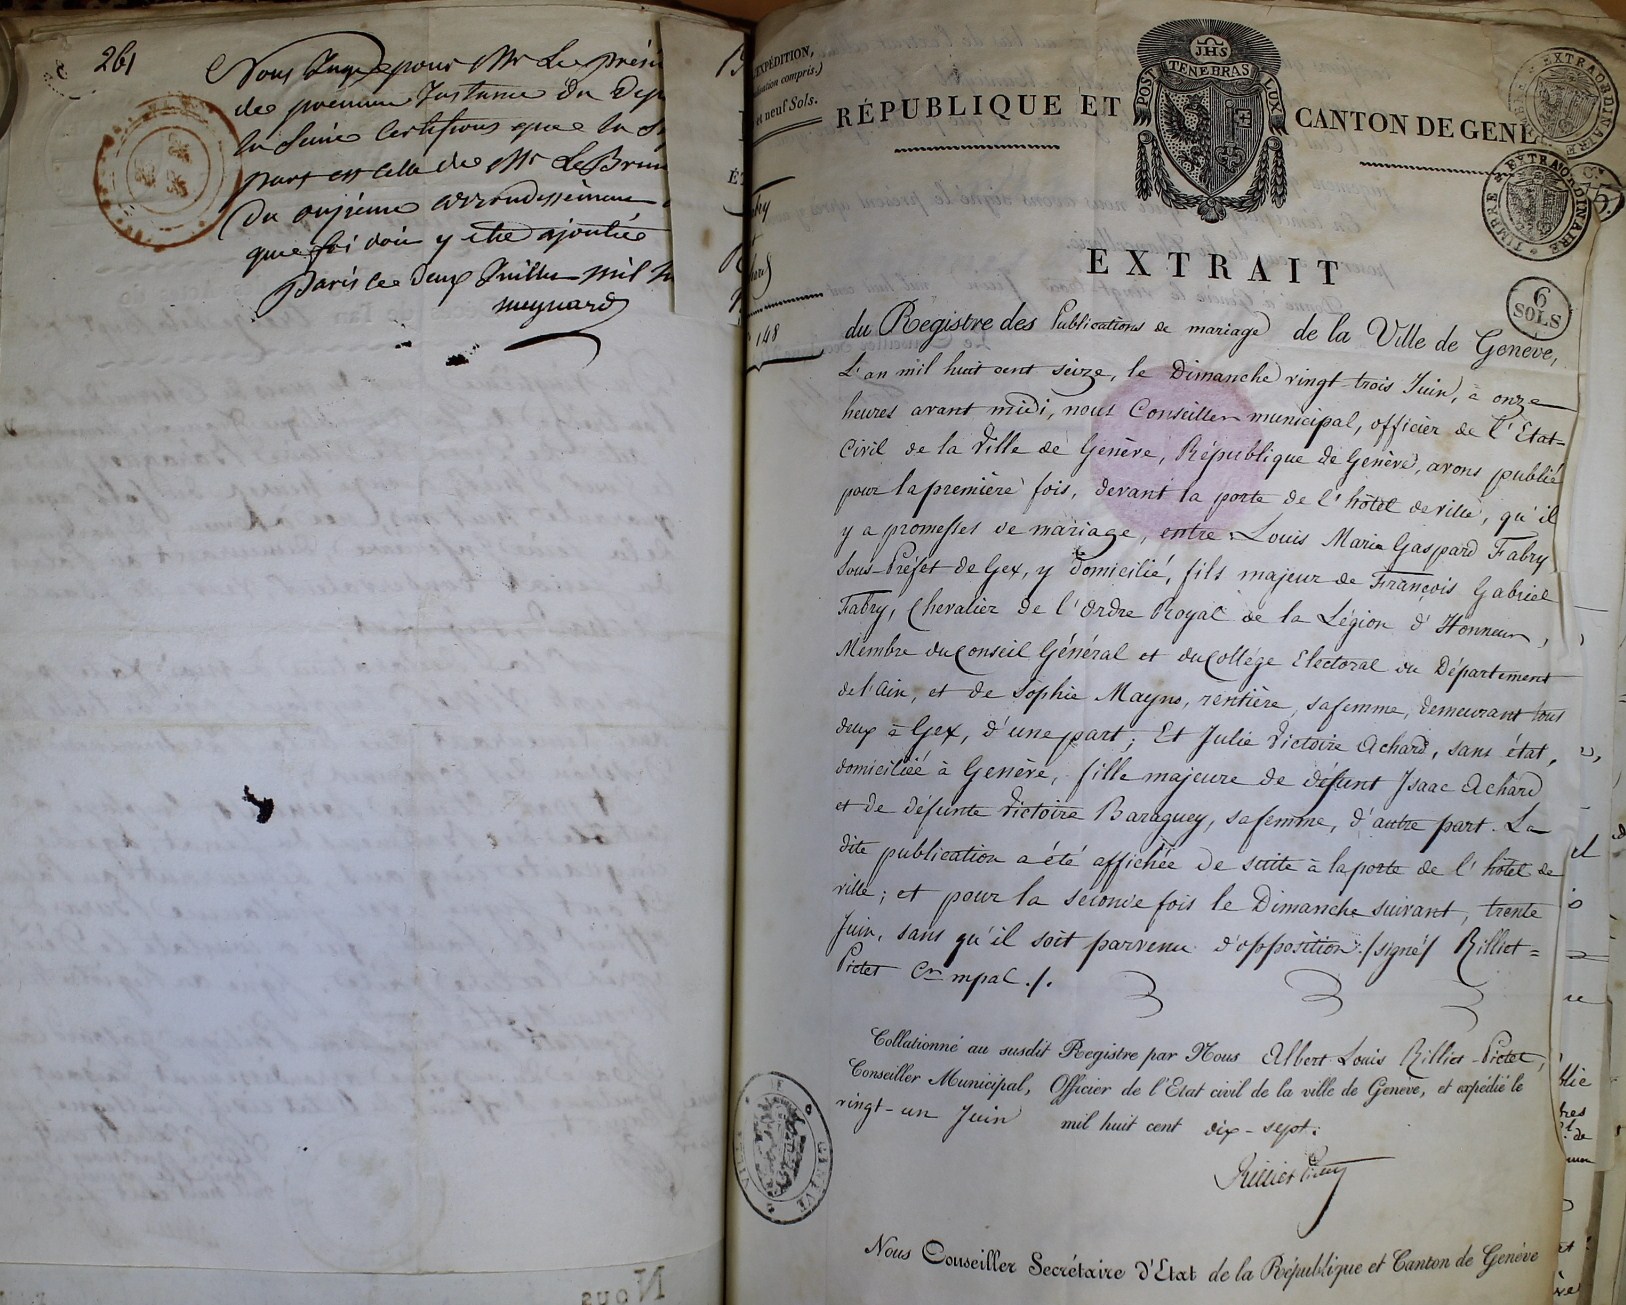 261
Nous Juge pour Mr Le Prési
de première Instance du Dép
la Seine Certifions que la Si
part est celle de Mr Le Brun
Du onzième arrondissement
que foi doit y être ajoutée
Paris le deux Juillet mil h
meynard
EXPÉDITION,
compris.)
et neuf Sols.
148
RÉPUBLIQUE ET CANTON DE GENÈ
JHS
POST TENEBRAS LUX
TIMBRE EXTRAORDINAIRE
TIMBRE EXTRAORDINAIRE
EXTRAIT
6
SOLS
du Registre des Publications de mariage de la Ville de Genève,
L'an mil huit cent seize, le Dimanche vingt-trois Juin, à onze
heures avant midi, nous Conseiller municipal, officier de l'Etat-
Civil de la Ville de Genève, République de Genève, avons publié
pour la première fois, devant la porte de l'hôtel de ville, qu'il
y a promesses de mariage, entre Louis Marie Gaspard Fabry
Sous-Préfet de Gex, y domicilié, fils majeur de François Gabriel
Fabry, Chevalier de l'Ordre Royal de la Légion d'Honneur,
Membre du Conseil Général et du Collége Electoral du Département
de l'Ain, et de Sophie Mayno, rentière, sa femme, demeurant tous
deux à Gex, d'une part; Et Julie Victoire Achard, sans état,
domiciliée à Genève, fille majeure de défunt Isaac Achard
et de défunte Victoire Baraguey, sa femme, d'autre part. La
dite publication a été affichée de suite à la porte de l'hôtel de
ville; et pour la seconde fois le Dimanche suivant, trente
Juin, sans qu'il soit parvenu d'opposition. /signé/ Rilliet=
Pictet Cer mpal./.
Collationné au susdit Registre par Nous Albert Louis Rilliet-Pictet,
Conseiller Municipal, Officier de l'Etat civil de la ville de Genève, et expédié le
vingt-un Juin mil huit cent dix-sept.
Rilliet Pictet
VILLE GENÈVE
Nous Conseiller Secrétaire d'Etat de la République et Canton de Genève
Nous